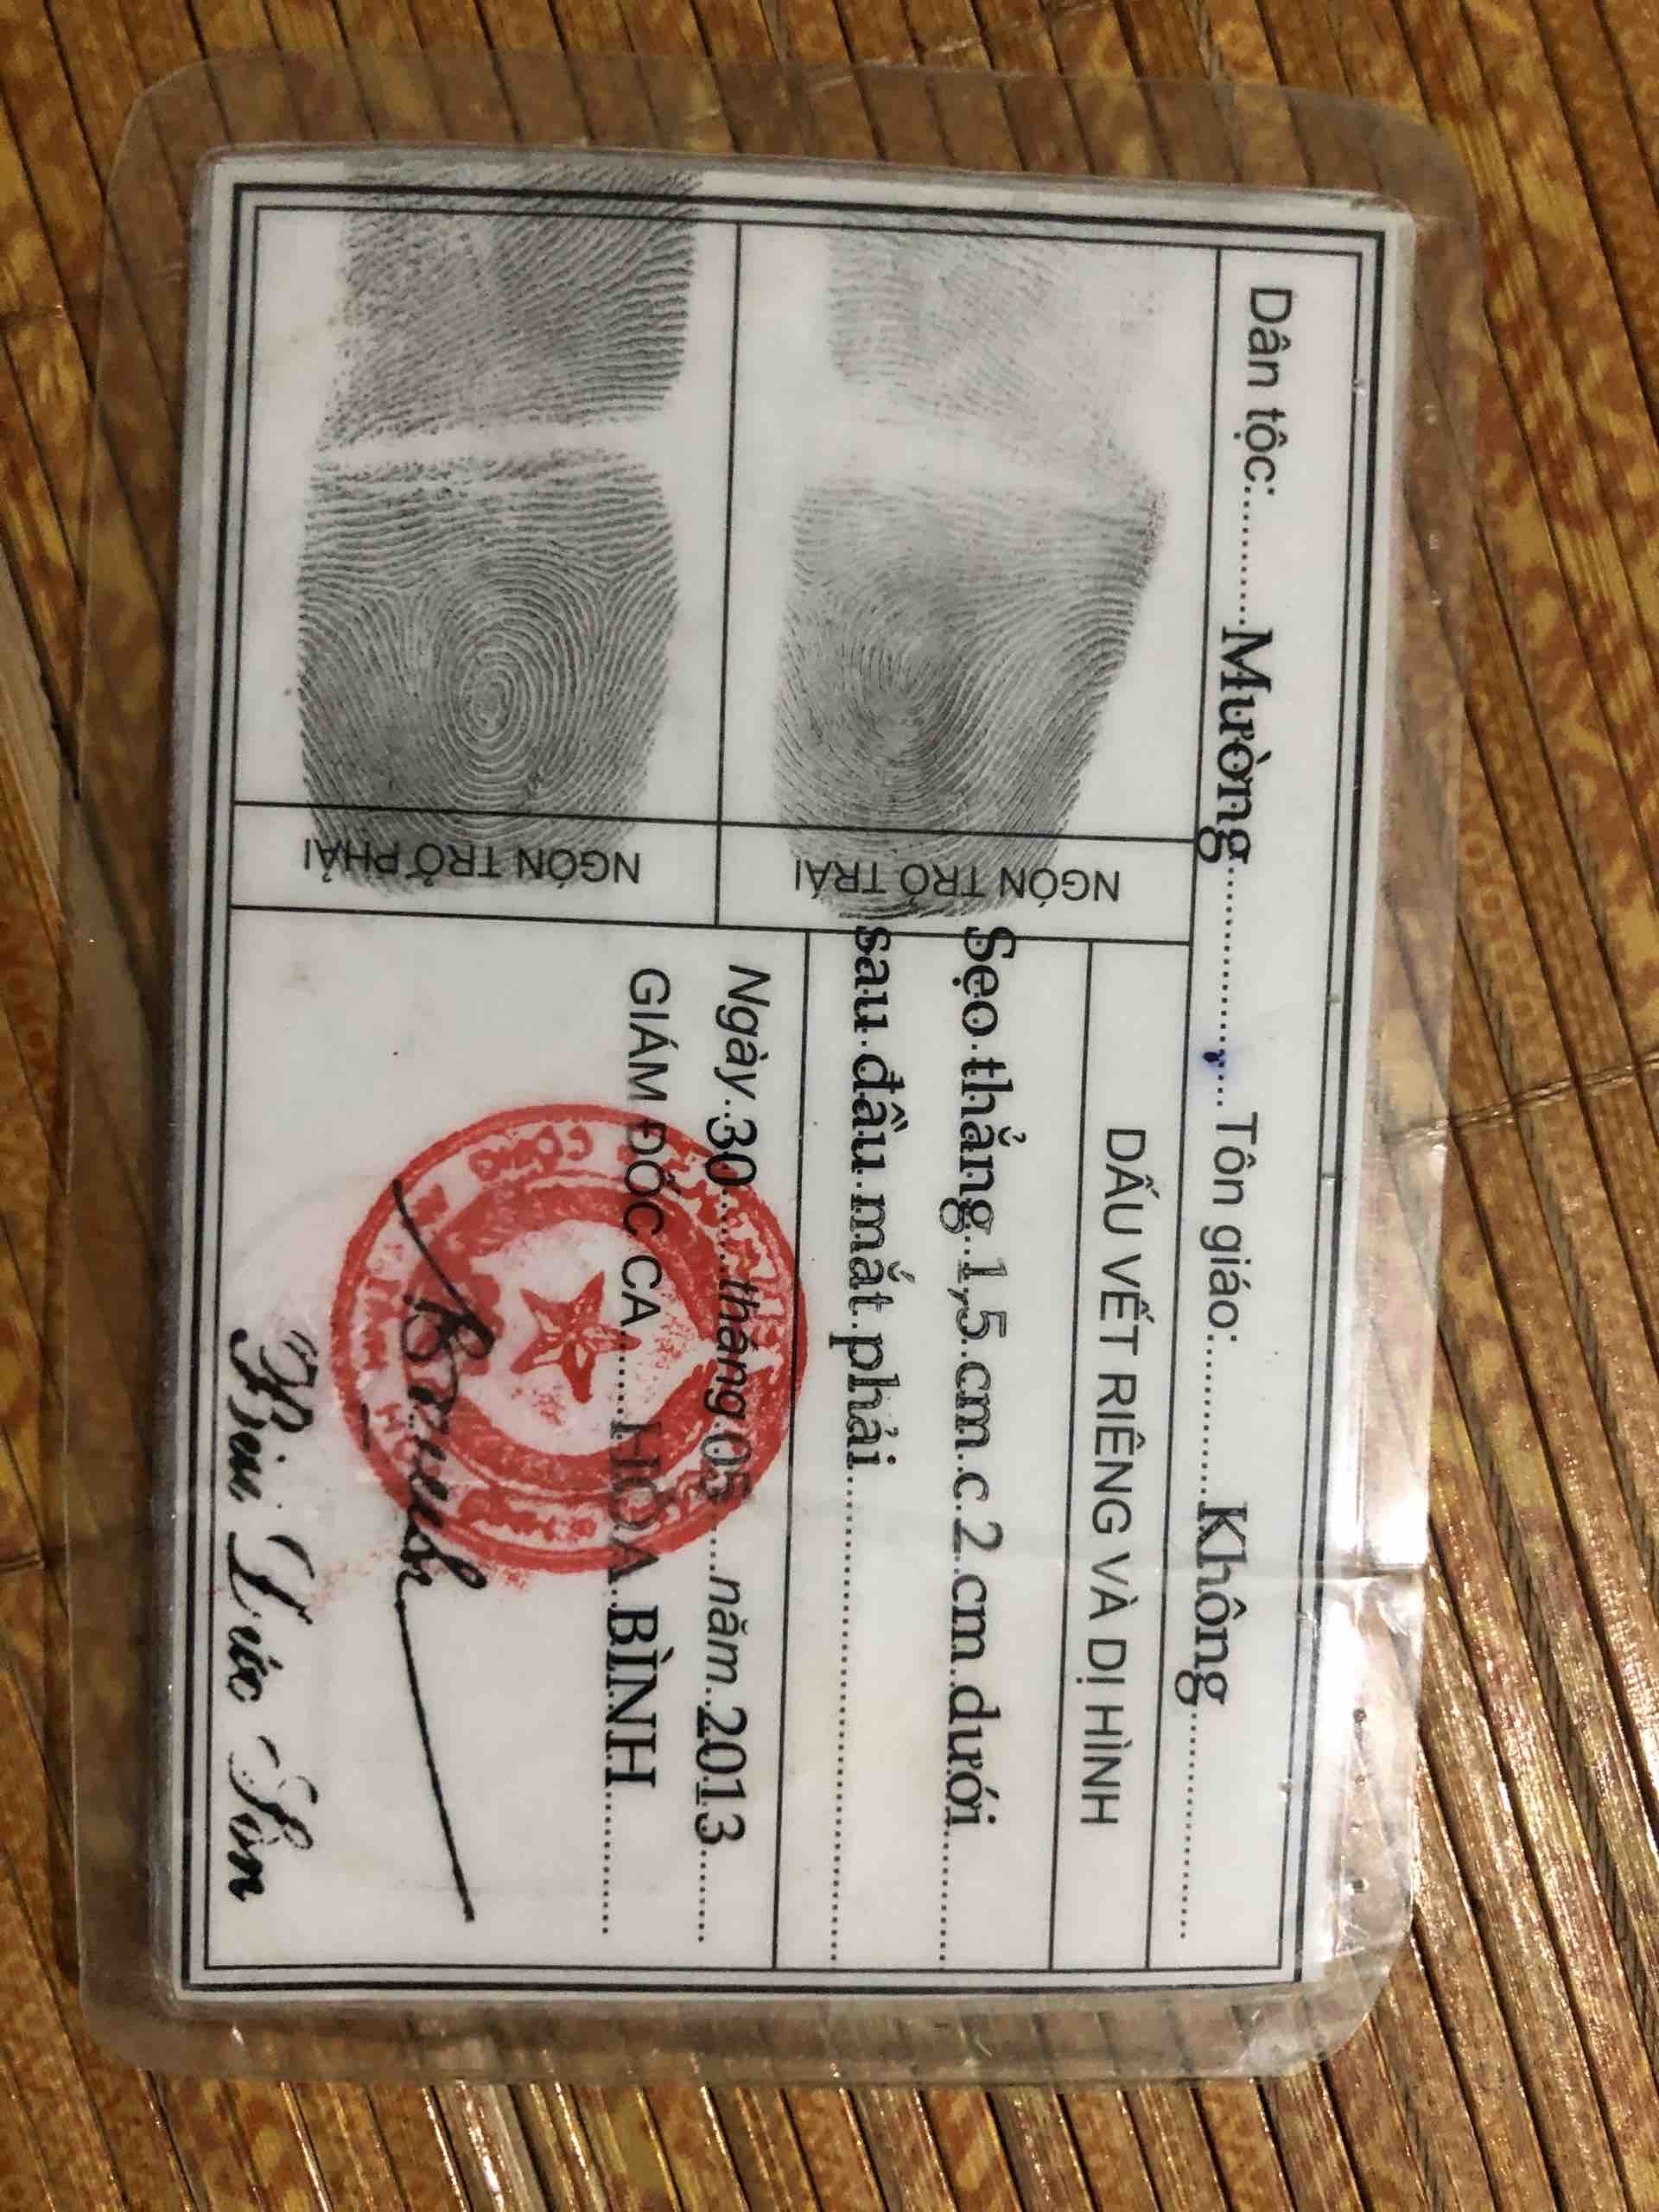 Dân tộc: Mường Tôn giáo: Không
NGÓN TRỎ TRÁI
NGÓN TRỎ PHẢI
DẤU VẾT RIÊNG VÀ DỊ HÌNH
Sẹo thẳng 1,5 cm c 2 cm dưới
sau đầu mắt phải
Ngày 30 tháng 05 năm 2013
GIÁM ĐỐC CA HÒA BÌNH
Bùi Đức Sòn